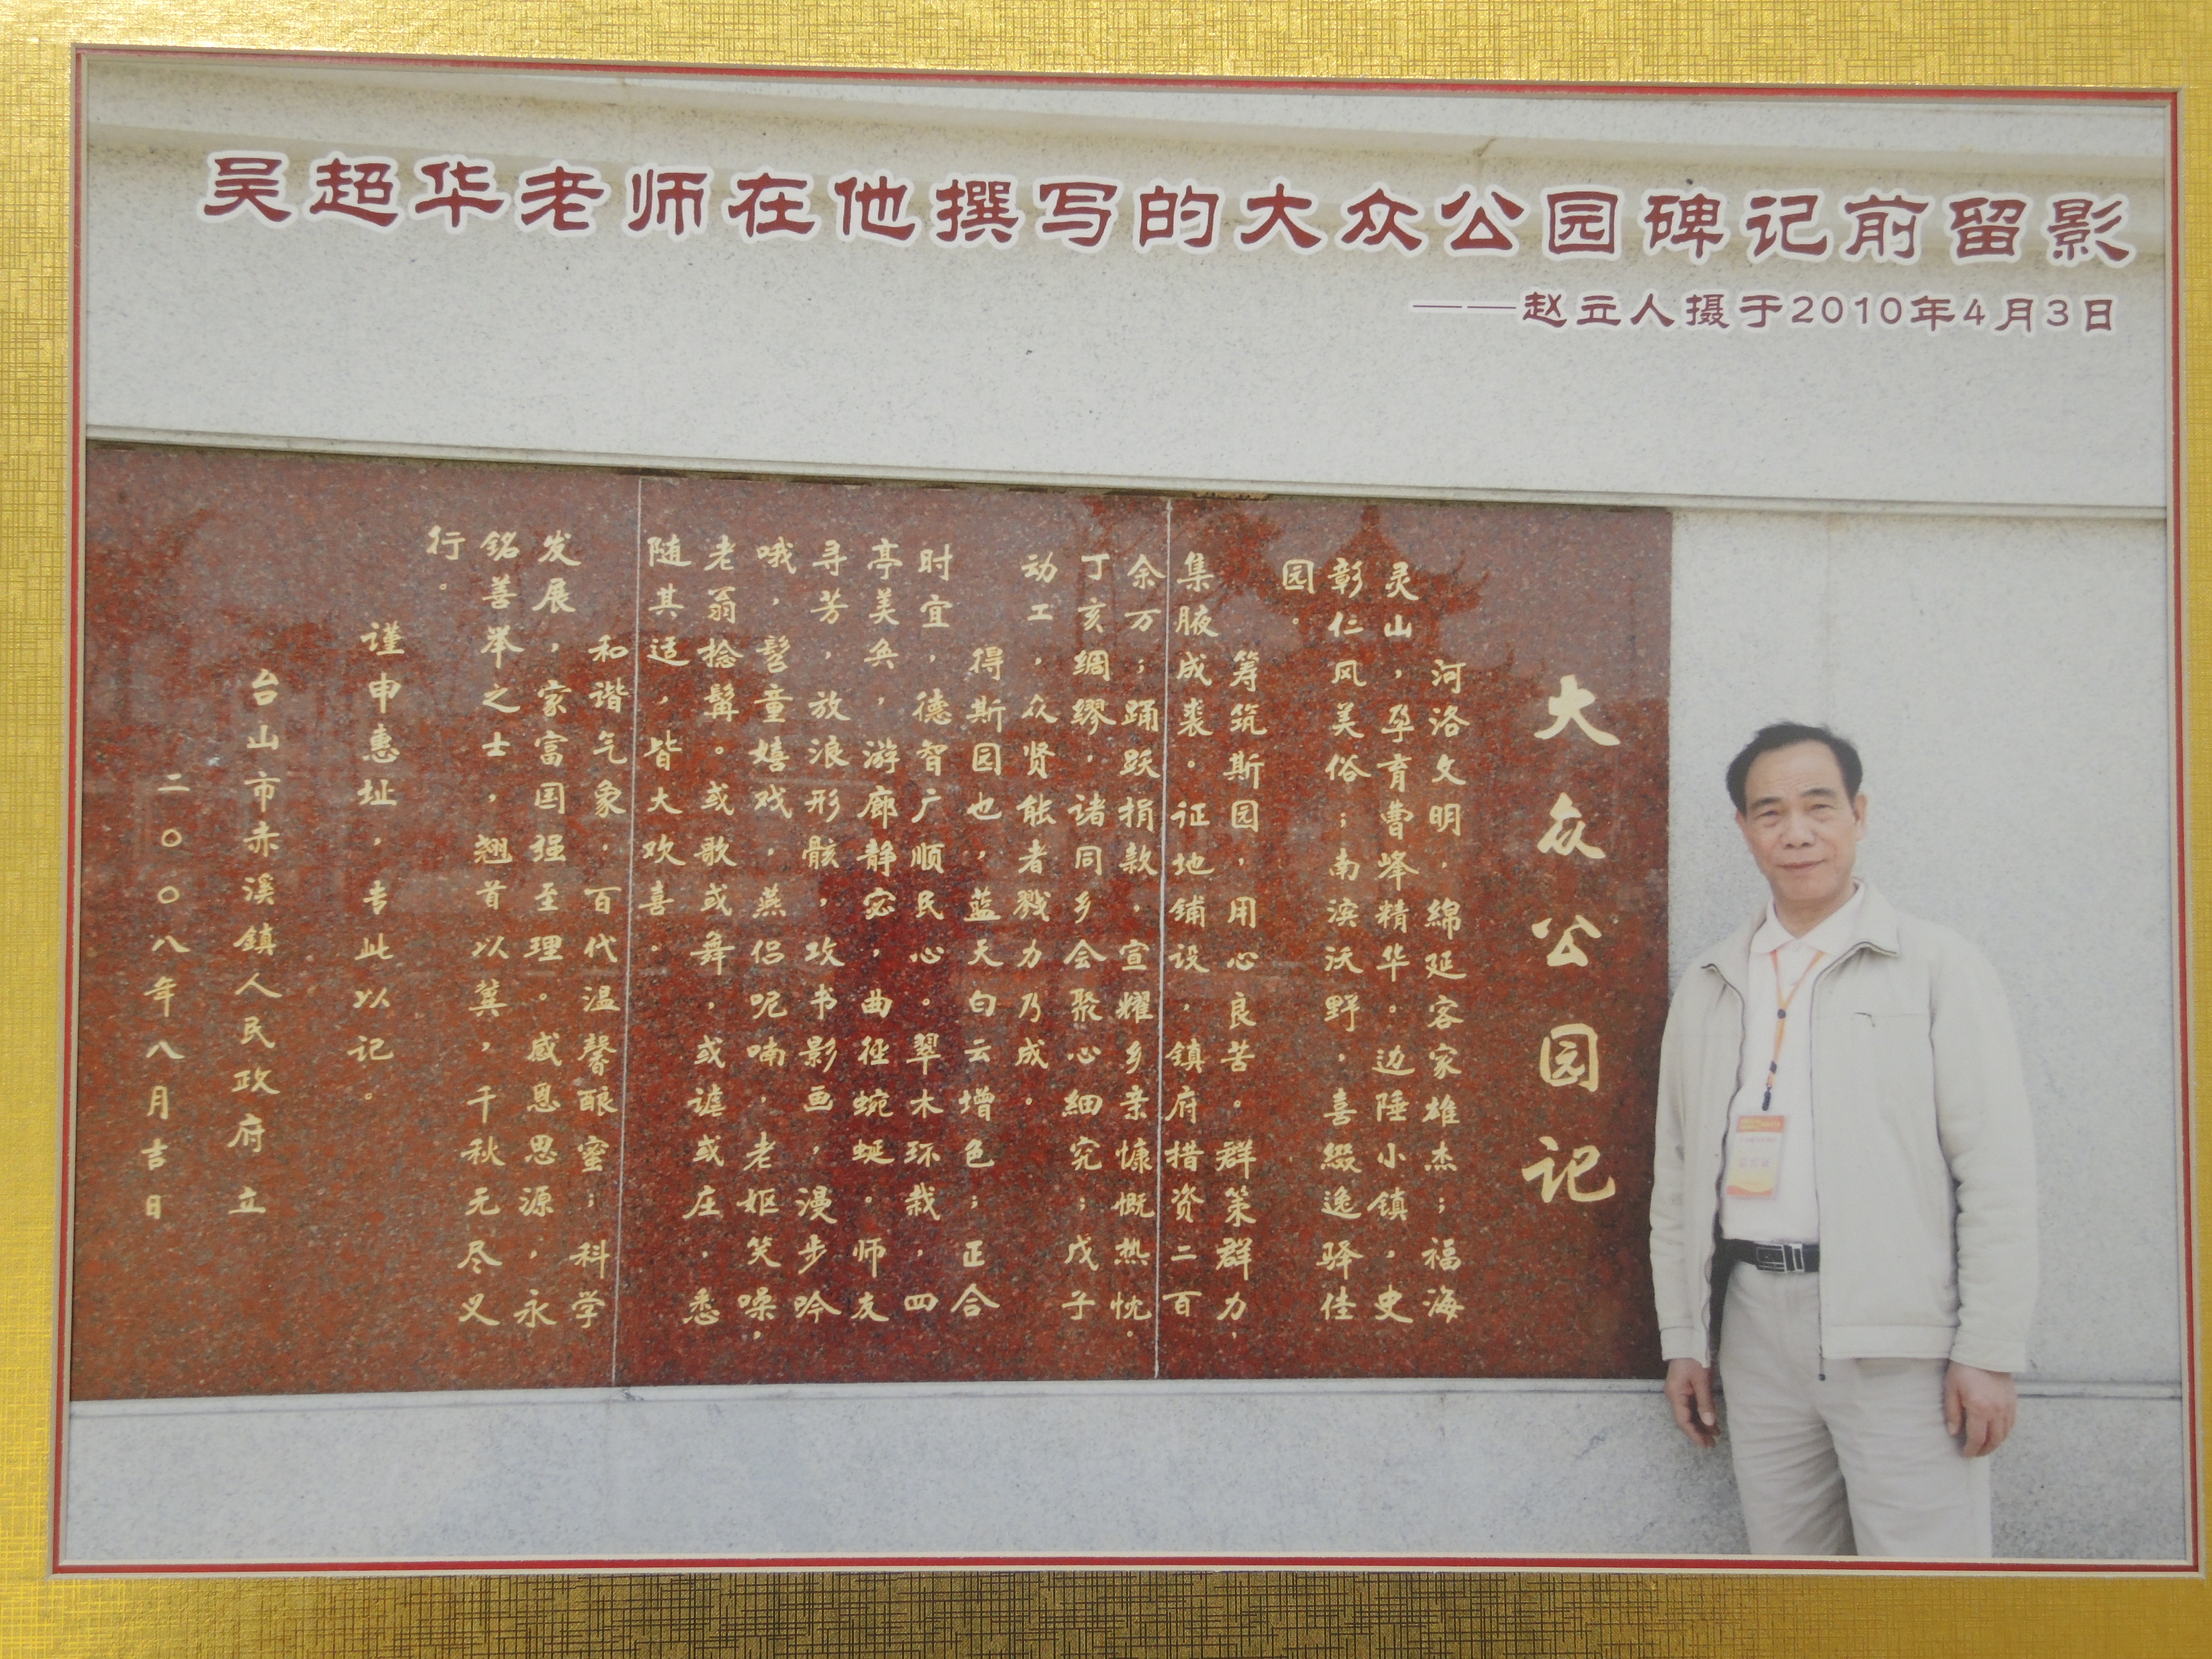 吴超华老师在他撰写的大众公园碑记前留影
——赵立人摄于2010年4月3日
大众公园记
河洛文明，綿延客家雄杰；福海
灵山，孕育曹峰精华。边陲小镇，史
彰仁风美俗；南滨沃野，喜缀逸驿佳
园。
筹筑斯园，用心良苦。群策群力，
集腋成裘。征地铺设，镇府措资二百
余万；踊跃捐款，宣耀乡亲慷慨热忱。
丁亥绸缪，诸同乡会聚心细究；戊子
动工，众贤能者戮力乃成。
得斯园也，蓝天白云增色；正合
时宜，德智广顺民心。翠木环栽，四
亭美奂，游廊静宓，曲径蜿蜒。师友
寻芳，放浪形骸，攻书影画，漫步吟
哦，髫童嬉戏，燕侣呢喃，老妪笑嗓，
老翁捻髯。或歌或舞，或谑或庄，悉
随其适，皆大欢喜。
和谐气象，百代温馨酿蜜；科学
发展，家富国强至理。感恩思源，永
銘善举之士，翘首以冀，千秋无尽义
行。
谨申惠址，专此以记。
台山市赤溪鎮人民政府 立
二〇〇八年八月吉日